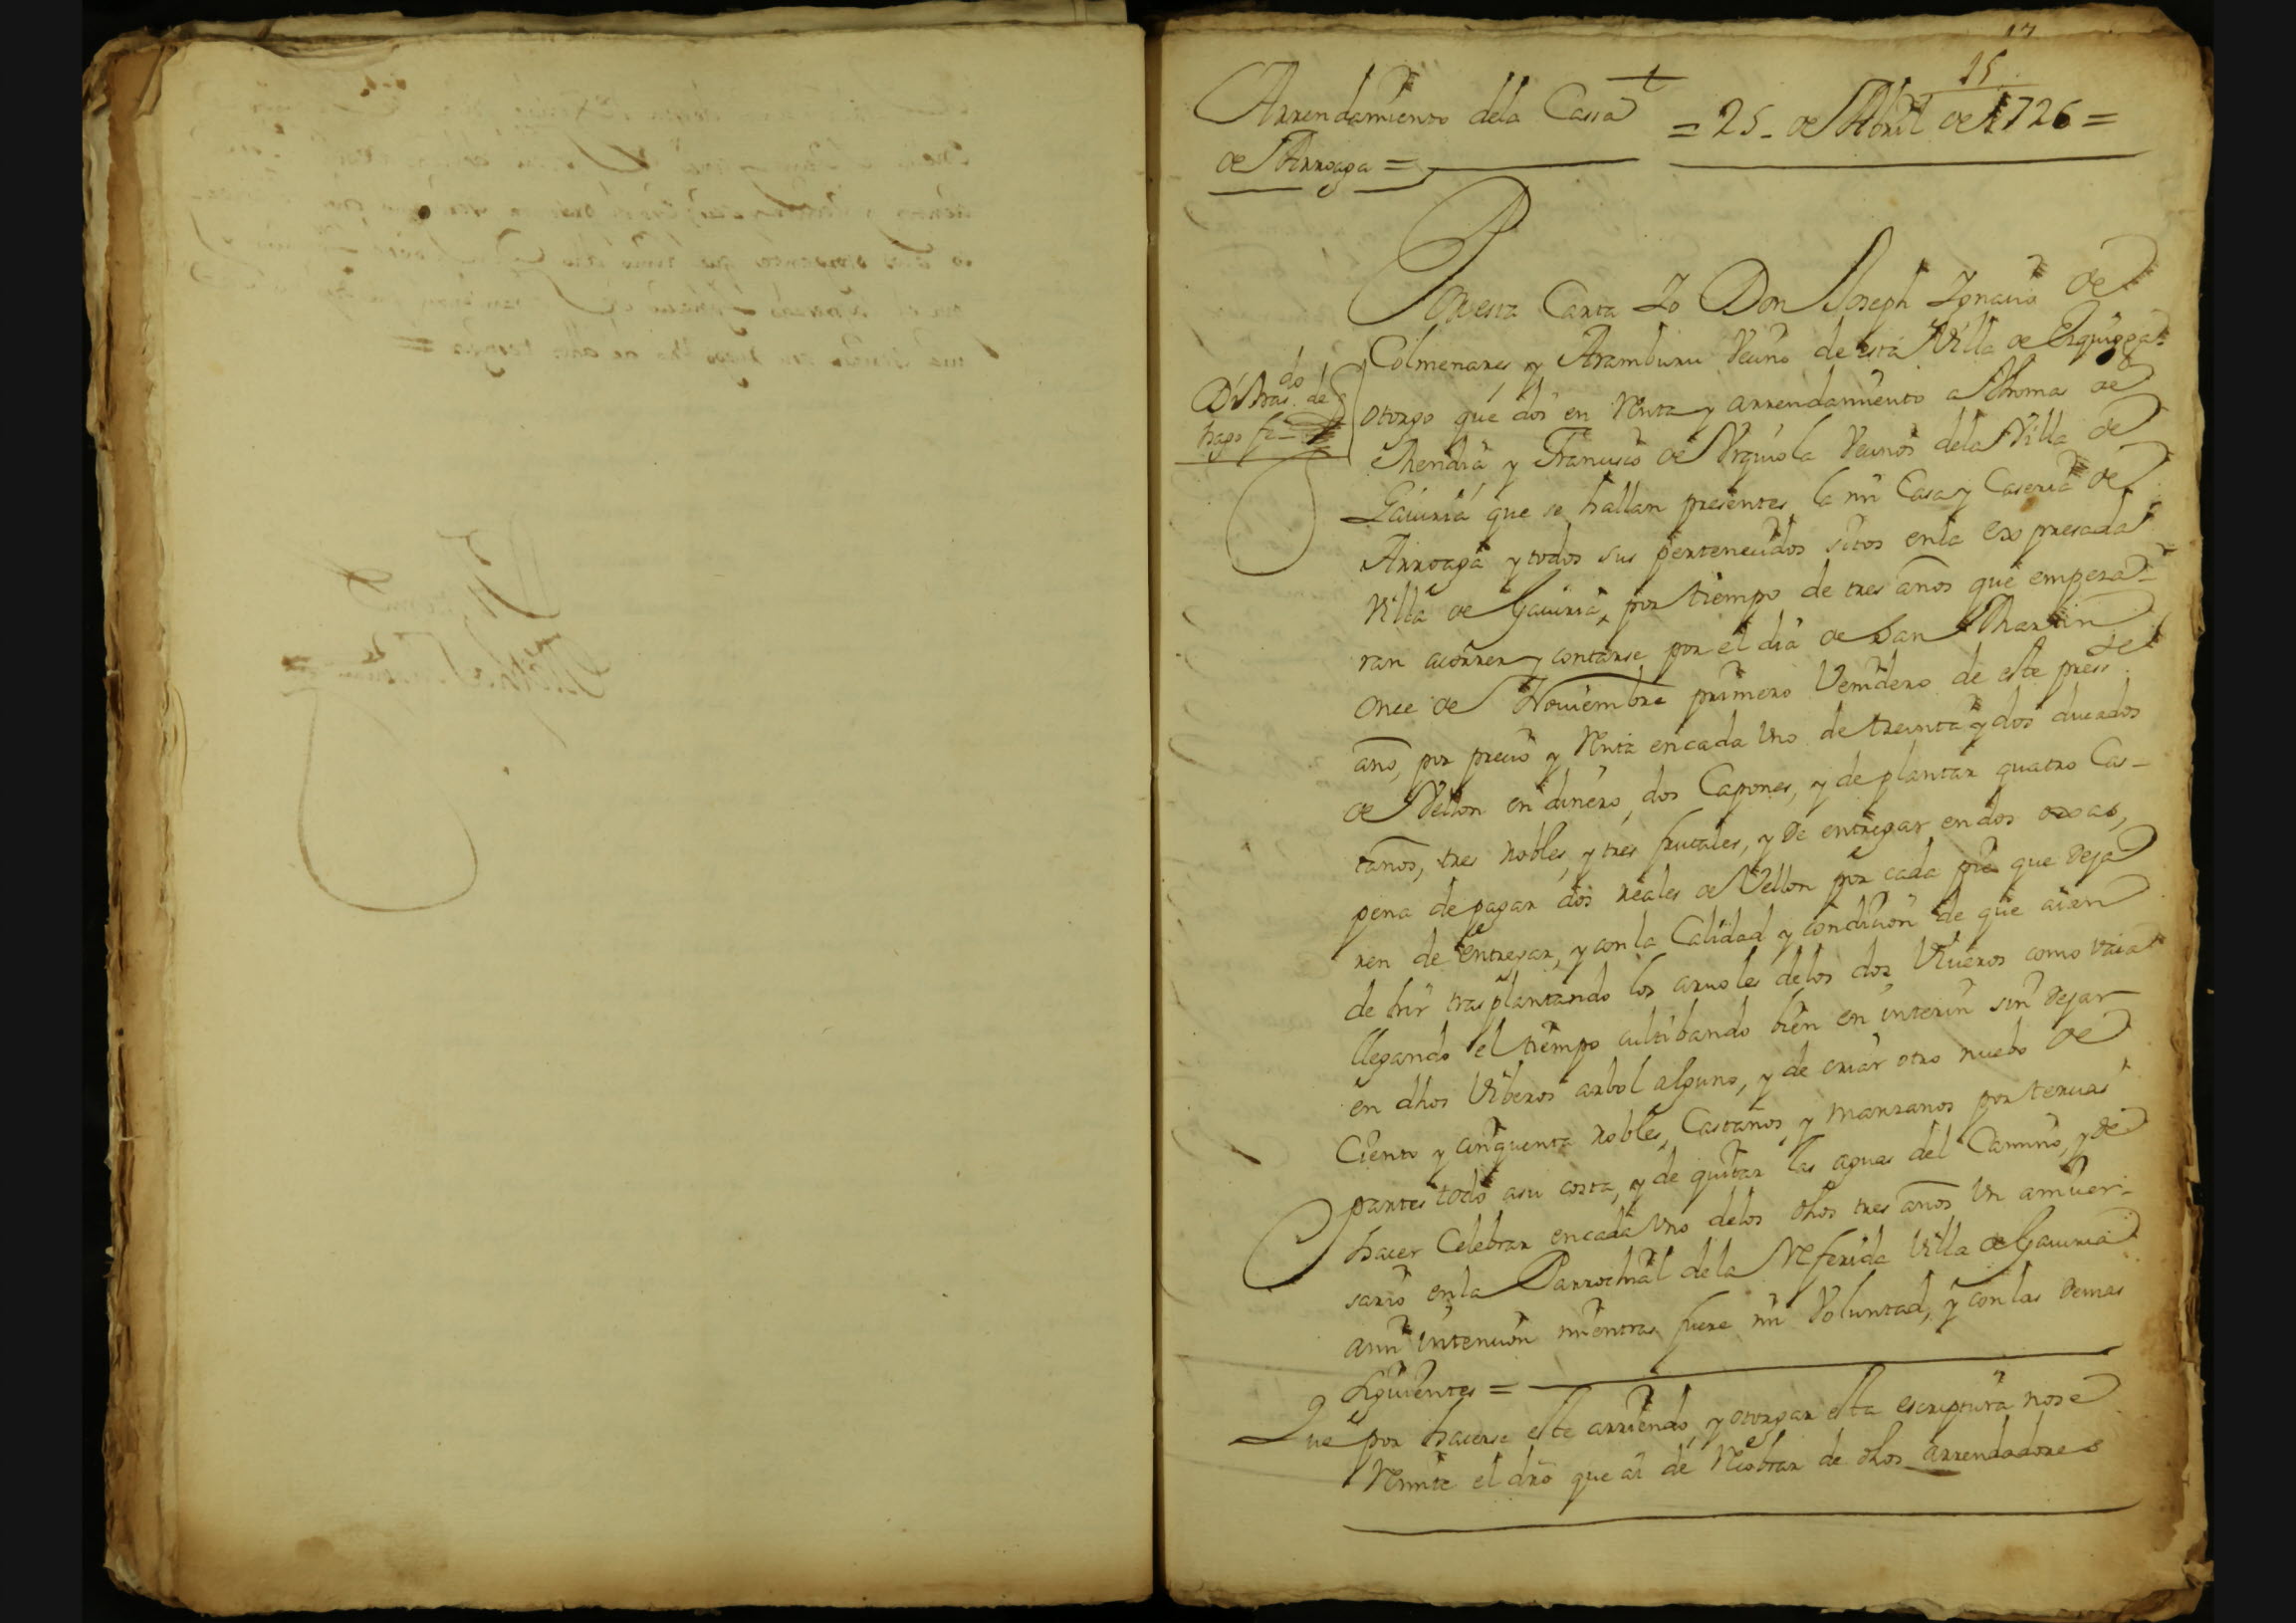 17
15
Arrendamiento dela Cassa
= 25 - de Abril de 1726 =
de Arroaga =
Por esta Carta Yo Don Joseph Ygnacio de
Colmenares y Aramburu Vecino de esta Villa de Ezquioga
otorgo que doi en Renta y arrendamiento a Thomas de
Rendia y Francisco de Vrquiola Vecinos dela Villa de
Gauiria que se hallan presentes la mi Casa y Caseria de
Arroaga y todos sus pertenecidos sitos enla expresada
Villa de Gauiria, por tiempo de tres años que empeza-
ran acorrer y contarse por el dia de San Martin
once de Nouiembre primero Venidero de este press.te
año, por precio y Renta encada Vno de treinta y dos ducados
de Vellon en dinero, dos Capones, y de plantar quatro Cas-
taños, tres robles, y tres frutales, y de entregar en dos oxas,
pena de pagar dos reales de Vellon por cada pie que deja
ren de entregar, y con la Calidad y condicion de que aian
de hir trasplantando los aruoles delos dos Viueros como vaia
llegando el tiempo cultibando bien en interin sin dejar
en dhos Viberos arbol alguno, y de criar otro nuebo de
Ciento y cinquenta robles, Castaños y manzanos por tercias
partes todo asu costa, y de quitar las aguas del Camino, y de
hacer Celebrar encada Vno delos dhos tres años Vn aniuer-
sario enla Parrochial dela Referida Villa de Gauiria
ami intencion mientras fuere mi Voluntad, y con las demas
siguientes =
Que por hacerse este arriendo, y otorgar esta escriptura nose
Remite el dro que ai de Recobrar de dhos arrendadores
do
Di tras. de
hago fe